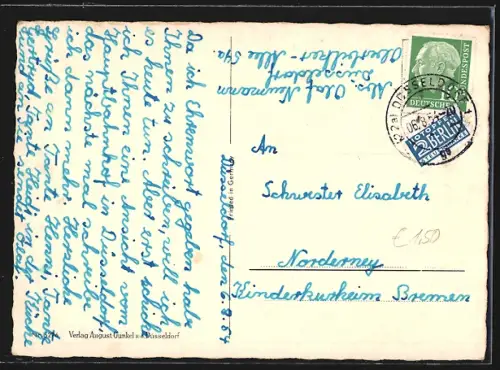 Düsseldorf, den 6.8.54
Da ich Ehrenwort gegeben habe
Ihnen zu schreiben, will ich
es heute tun. Aber erst schicke
ich Ihnen eine Ansicht vom
Hauptbahnhof in Düsseldorf,
das nächste mal schreibe
ich dann mehr. Herzliche
Grüsse an Tante Henni, Tante
Tante Hedi in der Küche
Abs. Olaf Neumann
Düsseldorf
Oberbilker-Allee
An
Schwester Elisabeth
Norderney
Kinderkurheim Bremen
€ 150
DEUTSCHE BUNDESPOST
(22a) DÜSSELDORF 1
06.8.54
NOTOPFER
2 BERLIN
STEUERMARKE
Printed in Germany
Verlag August Gunkel Düsseldorf